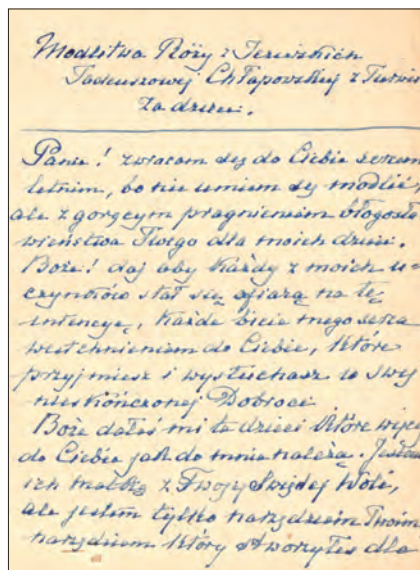 Modlitwa Róży z Jezierskich
Tadeuszowej Chłapowskiej z Turwi
za dzieci.
Panie! zwracam się do Ciebie sercem
letnim, bo nie umiem się modlić,
ale z gorącym pragnieniem błogosła
wieństwa Twego dla moich dzieci.
Boże! daj aby każdy z moich u-
czynków stał się ofiarą na tę
intencyę, każde bicie mego serca
westchnieniem do Ciebie, które
przyjmiesz i wysłuchasz w swej
nieskończonej Dobroci
Boże dałeś mi te dzieci które więcej
do Ciebie jak do mnie należą. Jestem
ich matką z Twojej Świętej Woli,
ale jestem tylko narzędziem Twoim
narzędziem który stworzyłeś dla